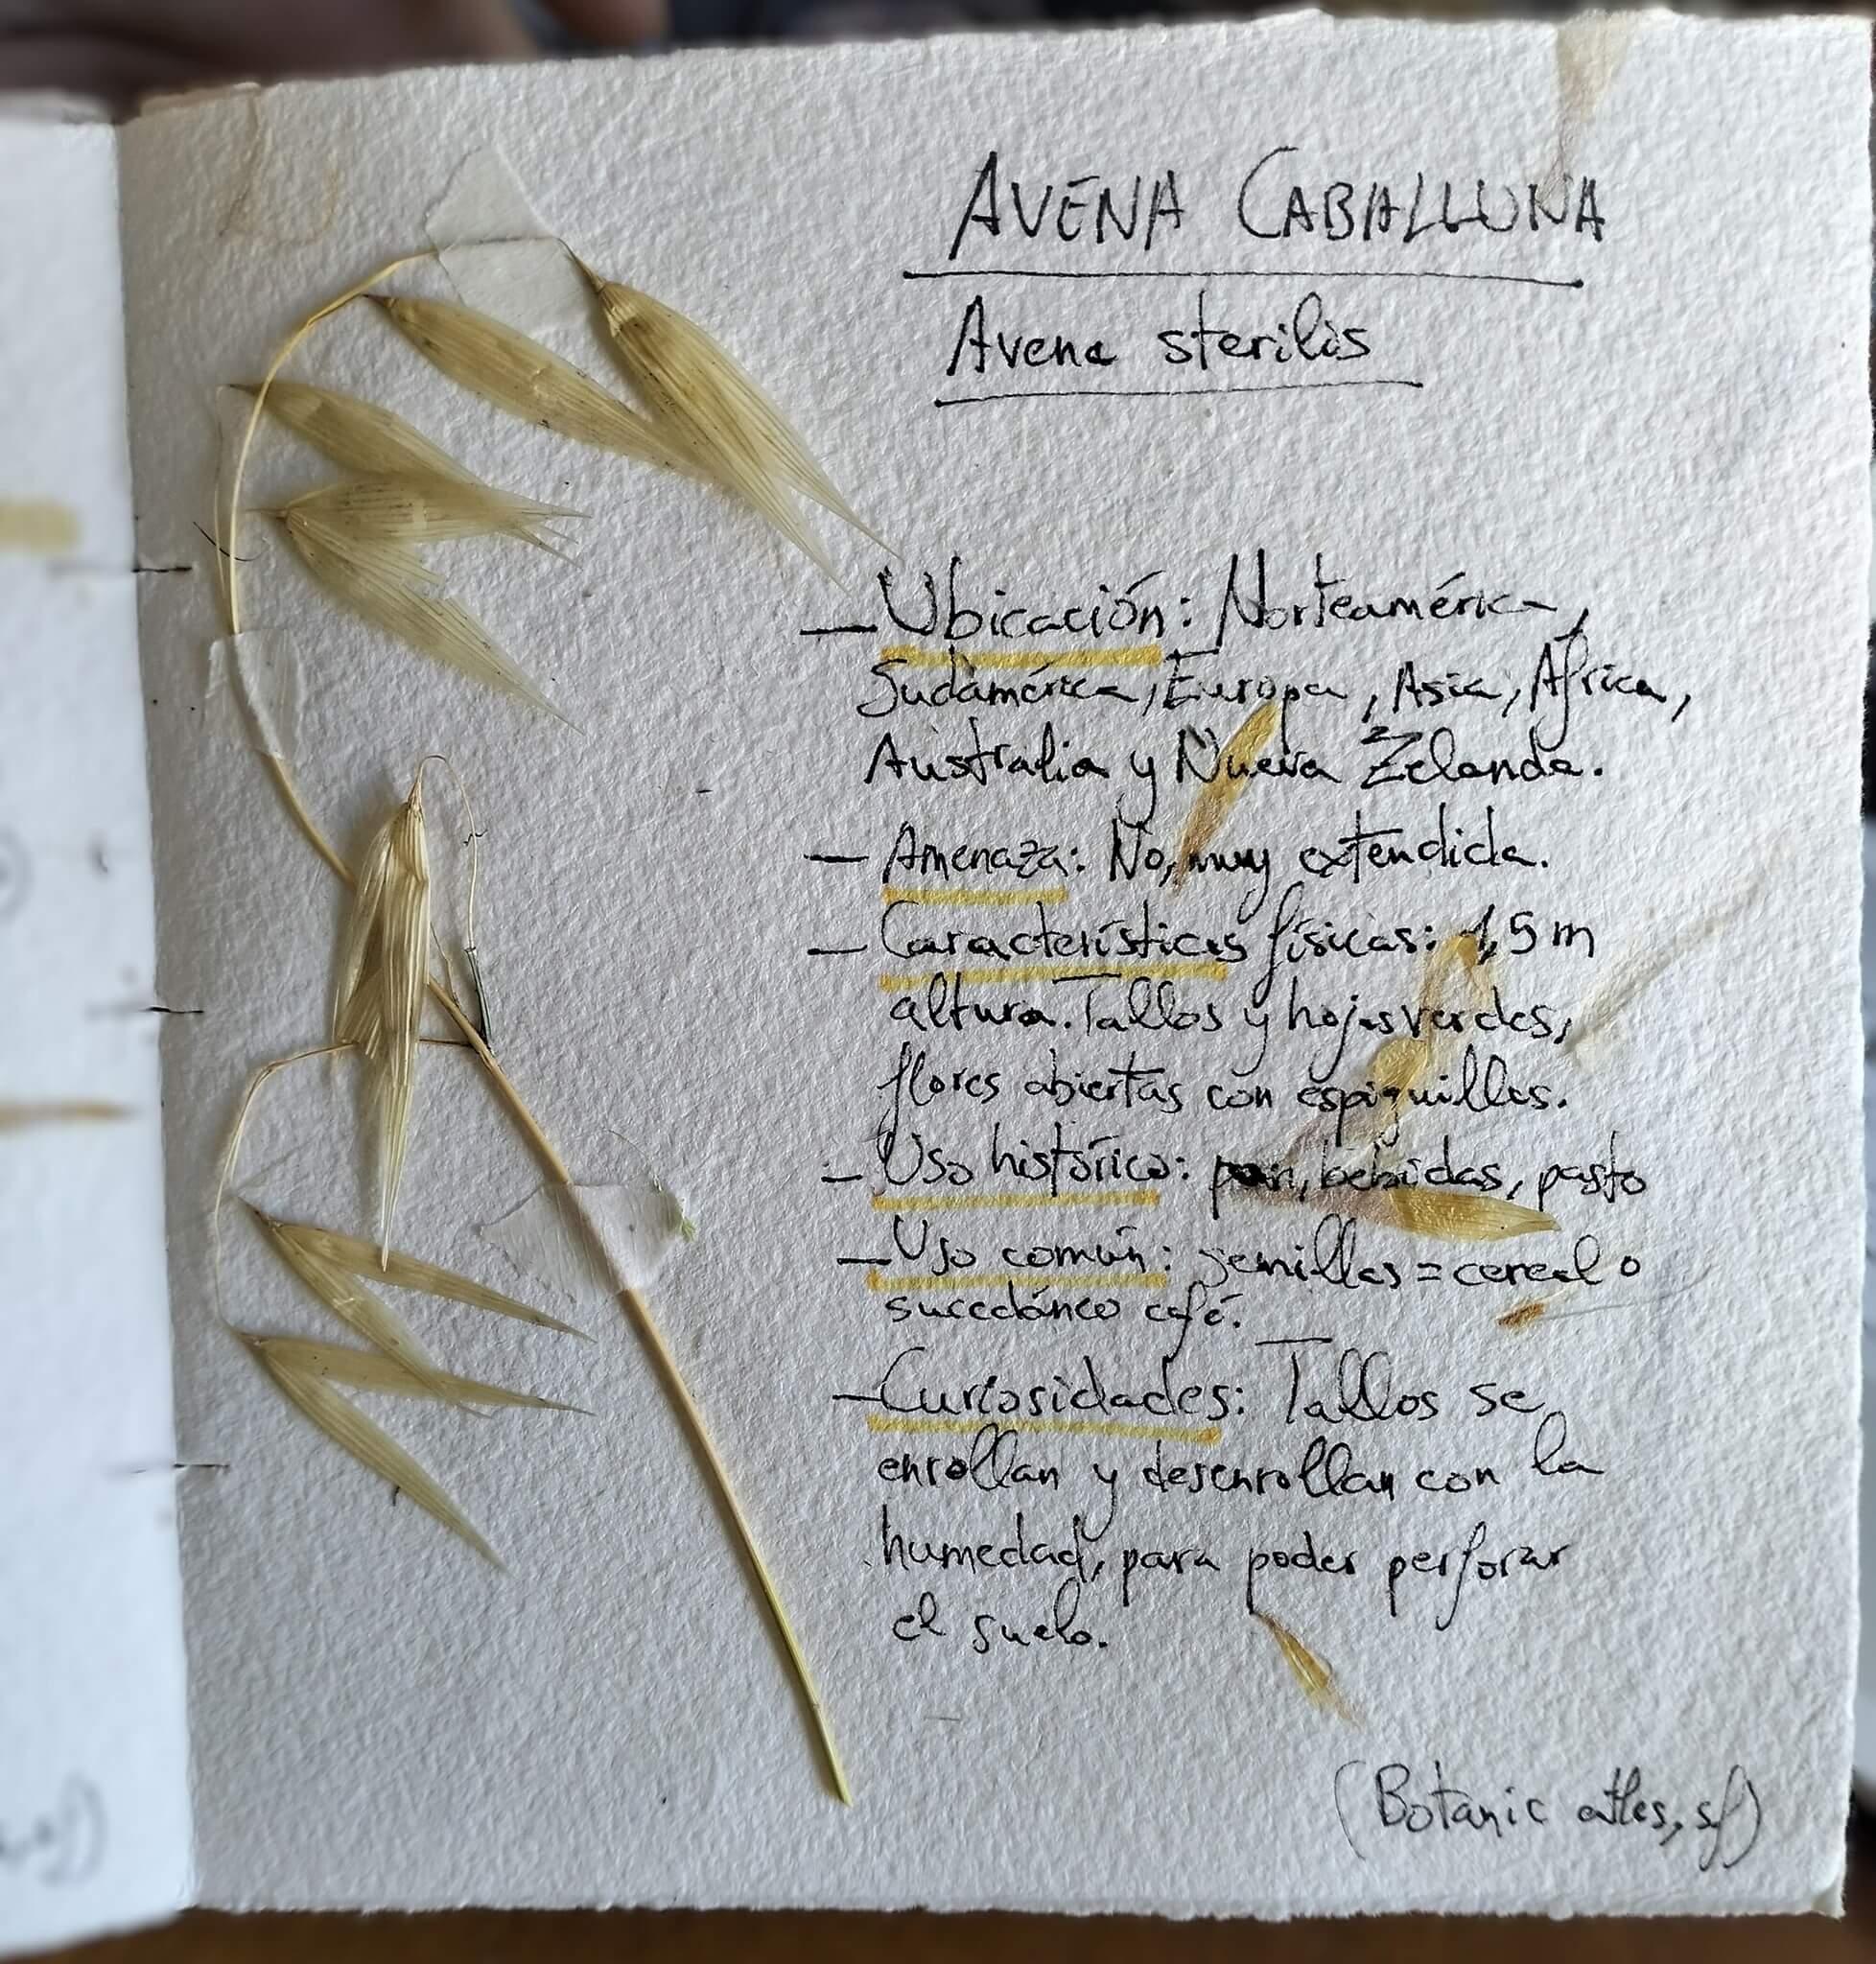 AVENA CABALLUNA
Avena sterilis
— Ubicación: Norteamérica,
Sudamérica, Europa, Asia, África,
Australia y Nueva Zelanda.
— Amenaza: No, muy extendida.
— Características físicas: 1,5 m
altura. Tallos y hojas verdes,
flores abiertas con espiguillas.
— Uso histórico: pan, bebidas, pasto
— Uso común: semillas = cereal o
sucedáneo café.
— Curiosidades: Tallos se
enrollan y desenrollan con la
humedad, para poder perforar
el suelo.
(Botanic atles, sf)